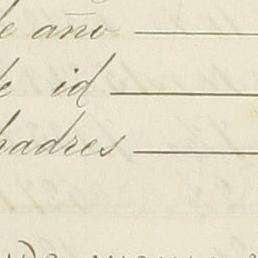 e año
e id
padres